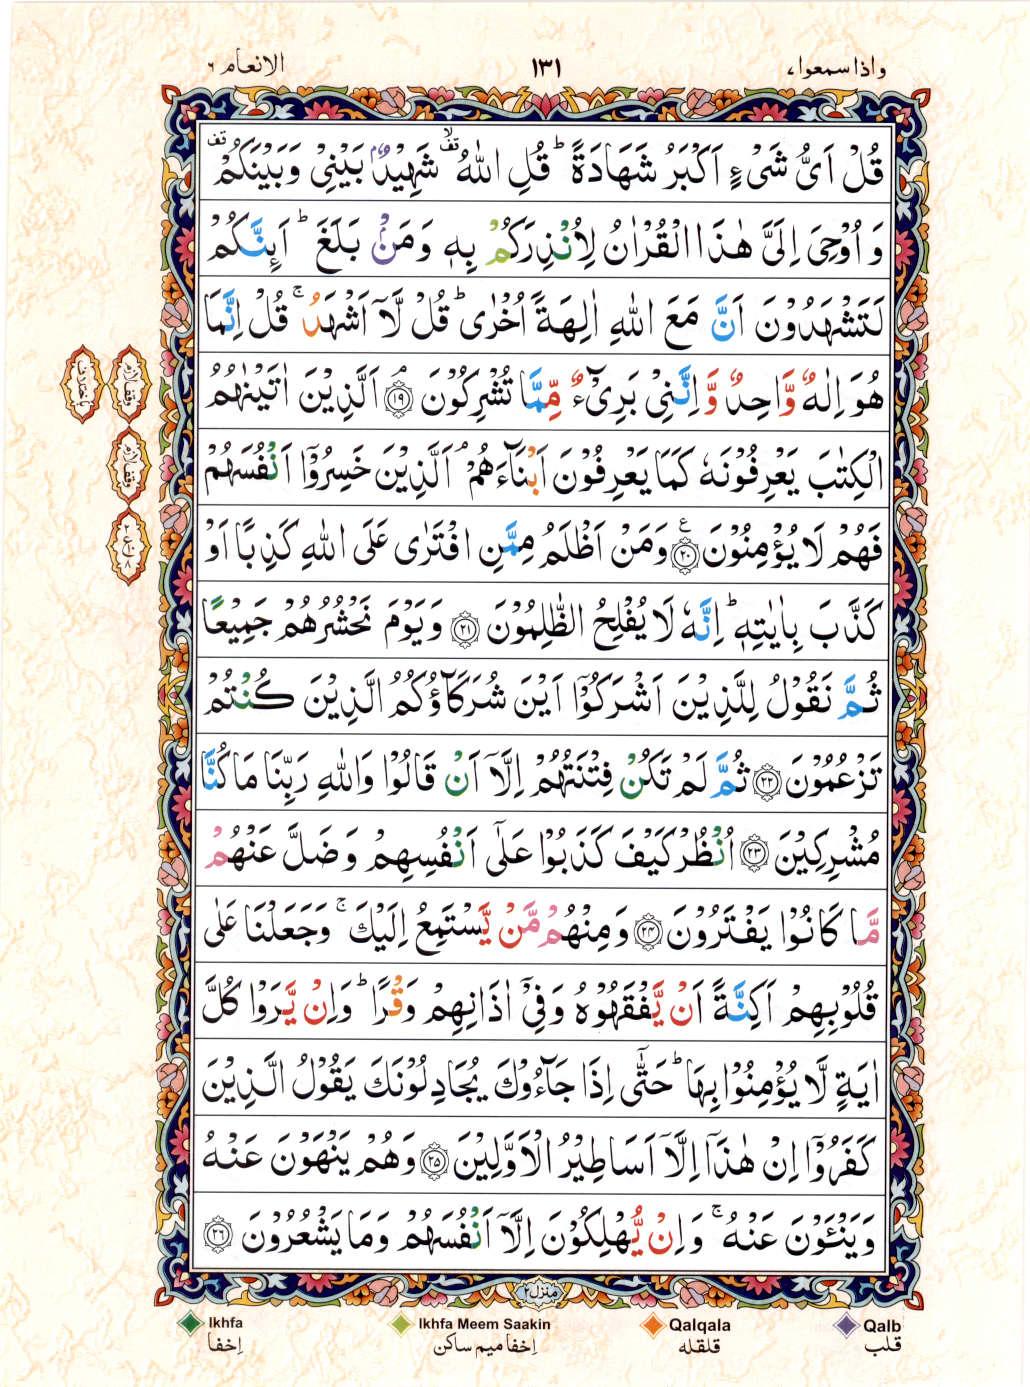 واذا سمعوا،
۱۳۱
الانعام ٦
قُلْ اَیُّ شَیْءٍ اَكْبَرُ شَهَادَةً ؕ قُلِ اللّٰهُ ۙ۫ شَهِیْدٌۢ بَیْنِیْ وَبَیْنَكُمْ ۫
وَ اُوْحِیَ اِلَیَّ هٰذَا الْقُرْاٰنُ لِاُنْذِرَكُمْ بِهٖ وَمَنْۢ بَلَغَ ؕ اَىِٕنَّكُمْ
لَتَشْهَدُوْنَ اَنَّ مَعَ اللّٰهِ اٰلِهَةً اُخْرٰی ؕ قُلْ لَّاۤ اَشْهَدُ ۚ قُلْ اِنَّمَا
هُوَ اِلٰهٌ وَّاحِدٌ وَّاِنَّنِیْ بَرِیْٓءٌ مِّمَّا تُشْرِكُوْنَ ۘ ﴿۱۹﴾ اَلَّذِیْنَ اٰتَیْنٰهُمُ
الْكِتٰبَ یَعْرِفُوْنَهٗ كَمَا یَعْرِفُوْنَ اَبْنَآءَهُمْ ۘ اَلَّذِیْنَ خَسِرُوْۤا اَنْفُسَهُمْ
فَهُمْ لَا یُؤْمِنُوْنَ ﴿۲۰﴾ ع وَمَنْ اَظْلَمُ مِمَّنِ افْتَرٰی عَلَی اللّٰهِ كَذِبًا اَوْ
كَذَّبَ بِاٰیٰتِهٖ ؕ اِنَّهٗ لَا یُفْلِحُ الظّٰلِمُوْنَ ﴿۲۱﴾ وَیَوْمَ نَحْشُرُهُمْ جَمِیْعًا
ثُمَّ نَقُوْلُ لِلَّذِیْنَ اَشْرَكُوْۤا اَیْنَ شُرَكَآؤُكُمُ الَّذِیْنَ كُنْتُمْ
تَزْعُمُوْنَ ﴿۲۲﴾ ثُمَّ لَمْ تَكُنْ فِتْنَتُهُمْ اِلَّاۤ اَنْ قَالُوْا وَاللّٰهِ رَبِّنَا مَا كُنَّا
مُشْرِكِیْنَ ﴿۲۳﴾ اُنْظُرْ كَیْفَ كَذَبُوْا عَلٰۤی اَنْفُسِهِمْ وَضَلَّ عَنْهُمْ
مَّا كَانُوْا یَفْتَرُوْنَ ﴿۲۴﴾ وَمِنْهُمْ مَّنْ یَّسْتَمِعُ اِلَیْكَ ۚ وَجَعَلْنَا عَلٰی
قُلُوْبِهِمْ اَكِنَّةً اَنْ یَّفْقَهُوْهُ وَفِیْۤ اٰذَانِهِمْ وَقْرًا ؕ وَاِنْ یَّرَوْا كُلَّ
اٰیَةٍ لَّا یُؤْمِنُوْا بِهَا ؕ حَتّٰۤی اِذَا جَآءُوْكَ یُجَادِلُوْنَكَ یَقُوْلُ الَّذِیْنَ
كَفَرُوْۤا اِنْ هٰذَاۤ اِلَّاۤ اَسَاطِیْرُ الْاَوَّلِیْنَ ﴿۲۵﴾ وَهُمْ یَنْهَوْنَ عَنْهُ
وَیَنْـَٔوْنَ عَنْهُ ۚ وَاِنْ یُّهْلِكُوْنَ اِلَّاۤ اَنْفُسَهُمْ وَمَا یَشْعُرُوْنَ ﴿۲۶﴾
منزل ۲
Ikhfa
اِخفا
Ikhfa Meem Saakin
اِخفا میم ساکن
Qalqala
قلقله
Qalb
قلب